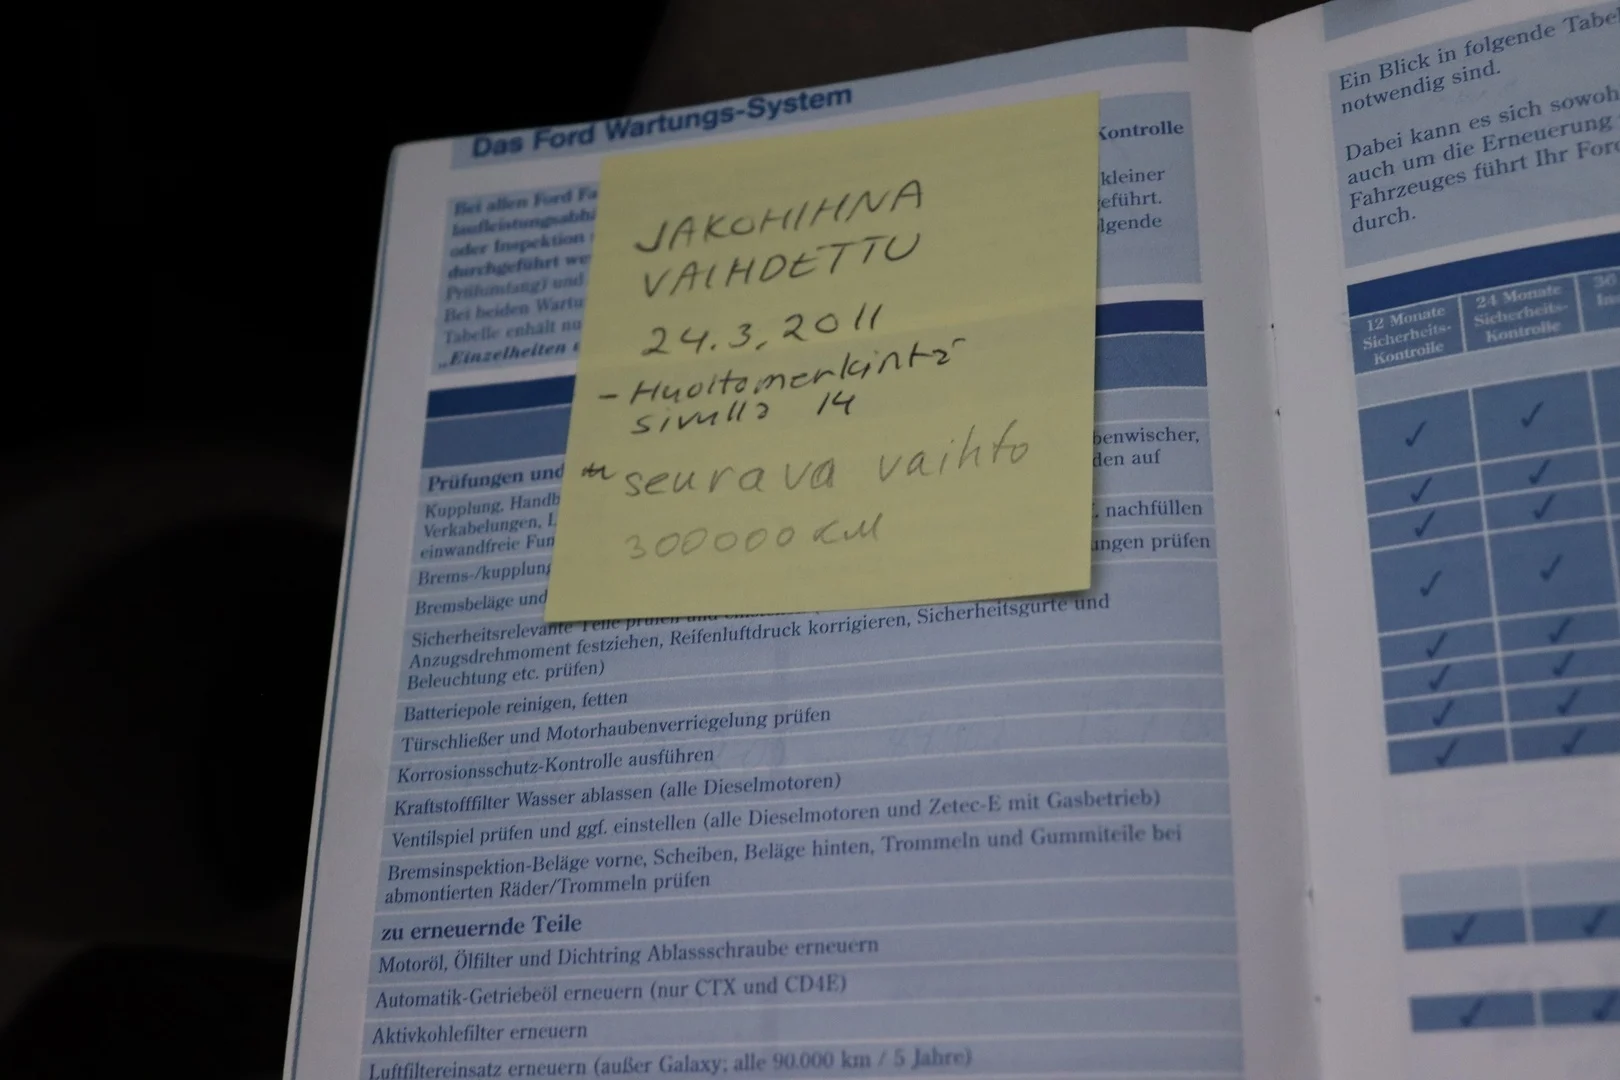 Das Ford Wartungs-System
Bei allen Ford Fa
laufleistungsabhä
oder Inspektion
durchgeführt we
Prüfumfang) und
Bei beiden Wartu
Tabelle enthält nu
„Einzelheiten
Kontrolle
kleiner
eführt.
lgende
JAKOHIHNA
VAIHDETTU
24.3.2011
- Huoltomerkintä
sivulla 14
seurava vaihto
300000 KM
Prüfungen und
Kupplung, Handb
Verkabelungen, L
einwandfreie Fun
Brems-/kupplung
Bremsbeläge und
benwischer,
den auf
, nachfüllen
ungen prüfen
Sicherheitsrelevante Teile prüfen und
Anzugsdrehmoment festziehen, Reifenluftdruck korrigieren, Sicherheitsgurte und
Beleuchtung etc. prüfen)
Batteriepole reinigen, fetten
Türschließer und Motorhaubenverriegelung prüfen
Korrosionsschutz-Kontrolle ausführen
Kraftstofffilter Wasser ablassen (alle Dieselmotoren)
Ventilspiel prüfen und ggf. einstellen (alle Dieselmotoren und Zetec-E mit Gasbetrieb)
Bremsinspektion-Beläge vorne, Scheiben, Beläge hinten, Trommeln und Gummiteile bei
abmontierten Räder/Trommeln prüfen
zu erneuernde Teile
Motoröl, Ölfilter und Dichtring Ablassschraube erneuern
Automatik-Getriebeöl erneuern (nur CTX und CD4E)
Aktivkohlefilter erneuern
Luftfiltereinsatz erneuern (außer Galaxy; alle 90.000 km / 5 Jahre)
Ein Blick in folgende Tabel
notwendig sind.
Dabei kann es sich sowoh
auch um die Erneuerung
Fahrzeuges führt Ihr Ford
durch.
12 Monate
Sicherheits-
Kontrolle
24 Monate
Sicherheits-
Kontrolle